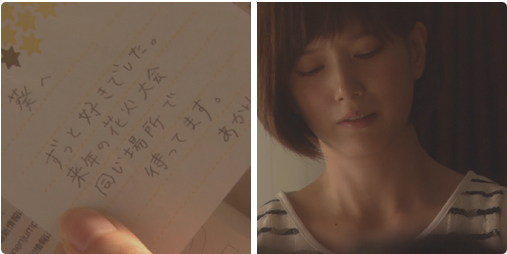 葵へ
ずっと好きでした。
来年の花火大会
同じ場所で
待ってます。
あかり